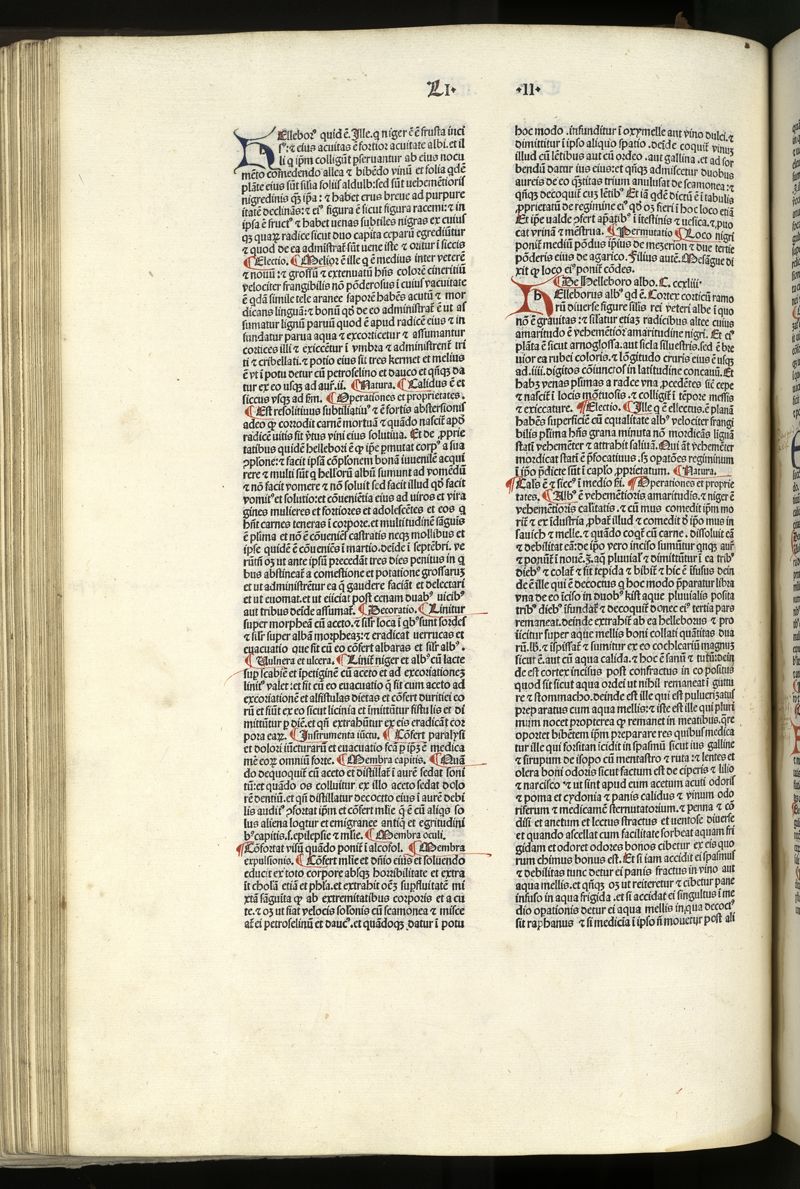 LI· ·II·
Ellebor⁹ quid ē. Ille. q niger ē ē frusta inci
sa: ⁊ eius acuitas ē fortior acuitate albi. et il
li q ipm colligūt pseruantur ab eius nocu
mēto comedendo allea ⁊ bibēdo vinū et folia qdē
plāte eius sūt silia foliis aldulb: sed sūt uehemētioris
nigredinis qz ipa: ⁊ habet crus breue ad purpure
itatē declināns: ⁊ ei⁹ figura ē sicut figura racemi: ⁊ in
ipsa ē fruct⁹ ⁊ habet uenas subtiles nigras ex cuius
radice sicut duo capita ceparū egrediūtur
⁊ quod de ea admistrat sūt uene iste ⁊ oritur ī siccis
¶Electio. ¶Melior ē ille q ē medius inter veterē
⁊ nouū: ⁊ grossū ⁊ extenuatū hñs colorē cineritiū
velociter frangibilis nō pōderosus ī cuius vacuitate
ē qdā simile tele aranee saporē habēs acutū ⁊ mor
dicans linguā: ⁊ bonū qd de eo administrat ē ut as
sumatur lignū paruū quod ē apud radicē eius ⁊ in
fundatur parua aqua ⁊ excorticetur ⁊ assumantur
cortices illi ⁊ exiccētur ī vmbra ⁊ administrent triti
ti ⁊ cribellati. ⁊ potio eius sit tres kermet ⁊ melius
ē vt ī potu detur cū petroselino et dauco et qñqz da
tur ex eo usqz ad aur. ii. ¶Natura. ¶Calidus ē et
siccus vsqz ad fm. ¶Operationes et proprietates.
¶Est resolutiuus subtiliatiu⁹ ⁊ ē fortis abstersionis
adeo qp corrodit carnē mortuā ⁊ quādo nascit apd
radicē uitis fit vtus vini eius solutiua. Et de pprie
tatibus quidē hellebori ē qp ipe pmutat corp⁹ a sua
cplone: ⁊ facit ipsā cōplonem bonā iuuenile acqui
rere ⁊ multi sūt q hellorū albū sumunt ad vomēdū
⁊ nō facit vomere ⁊ nō soluit sed facit illud qd facit
vomit⁹ et solutio: et cōuenientia eius ad uiros et vira
gines mulieres et fortiores et adolescētes et eos q
hñt carnes teneras ī corpore. et multitudinē sāguis
ē plima ⁊ nō ē cōueniēs castratis neqz mollibus et
ipse quidē ē cōueniēs ī martio. deīde ī septēbri. ve
rūtñ oz ut ante ipsū precedāt tres dies penitus in q
bus abstineat a comestione et potatione grossarum
et ut administrētur ea q gaudere faciāt et delectari
et ut euomat. et ut eiiciat post cenam duab⁹ uicib⁹
aut tribus deīde assumat. ¶Decoratio. ¶Linitur
super morpheā cū aceto. ⁊ silr loca ī qb⁹ sunt sordes
⁊ silr super albā morpheaz: ⁊ eradicat verrucas et
euacuatio que fit cū eo cōfert albaras et silr alb⁹.
¶Vulnera et ulcera. ¶Linit niger et alb⁹ cū lacte
sup scabiē et ipetiginē cū aceto et ad excoriationez
linit⁹ valet: et fit cū eo euacuatio q fit cum aceto ad
excoriationē et alsistulas dietas et cōfert duritiei eo
rū et fiūt ex eo sicut licinia et imittūtur fistulis et di
mittūtur p diē. et qñ extrahūtur ex eis eradicāt cor
pora eaz. ¶Instrumenta iūctu. ¶Cōfert paralysi
et dolori iūcturarū et euacuatio fca p ipz ē medica
mē eoz omniū forte. ¶Membra capitis. ¶Quā
do dequoquit cū aceto et distillat ī aurē sedat soni
tū: et quādo os colluitur ex illo aceto sedat dolo
rē dentiū. et qñ distillatur decoctio eius ī aurē debi
lis audit⁹ cfortat ipm et cōfert mlie q ē cū aliqs so
lus aliena loqtur et emigrance antiq et egritudini
b⁹ capitis. s. epilepsie ⁊ mlie. ¶Membra oculi.
¶Cōfortat visū quādo ponit ī alcofol. ¶Membra
expulsionis. ¶Cōfert mlie et dñio eius et soluendo
educit ex toto corpore absqz horribilitate et extra
it cholā etiā et phla. et extrahit oēz supfluitatē mi
xtā sāguīta qp ab extremitatibus corporis et a cu
te. ⁊ oz ut fiat velocis solonis cū scamonea ⁊ misce
at ei petroselinū et dauc⁹. et quādoqz datur ī potu
hoc modo. infunditur ī oxymelle aut vino dulci. ⁊
dimittitur ī ipso aliquo spatio. deīde coquit vinuz
illud cū lētibus aut cū ordeo. aut gallina. et ad sor
bendū datur ius eius: et qñqz admiscetur duobus
aureis de eo qztitas trium anulusat de scamonea: ⁊
qñqz decoquit cuz lētib⁹ Et iā qdē dictū ē ī tabulis
pprietatū de regimine ei⁹ qd oz fieri ī hoc loco etiā
Et ipe ualde pfert aptib⁹ ī itestinis ⁊ uesica. ⁊ puo
cat vrinā ⁊ mēstrua. ¶Permutatio ¶Loco nigri
ponit mediū pōdus ipius de mezerion ⁊ due tertie
pōderis eius de agarico. Filius autē. Mesāgue di
xit qp loco ei⁹ ponit cōdes.
¶De Helleboro albo. C. ccxliii·
Elleborus alb⁹ qd ē. Cortex corticū ramo
rū diuerse figure silis rei veteri albe ī quo
nō ē grauitas: ⁊ silatur etiaz radicibus altee cuius
amaritudo ē vehemētior amaritudine nigri. Et ei⁹
plāta ē sicut arnoglossa. aut sicla siluestris. sed ē bre
uior ea rubei coloris. ⁊ lōgitudo cruris eius ē usqz
ad. iiii. digitos cōiuncios in latitudine concauū. Et
habz venas plimas a radice vna pcedētes sic cepe
⁊ nascit ī locis mōtuosis. ⁊ colligit ī tēpore messis
⁊ exiccature. ¶Electio. ¶Ille q ē ellectus. ē planā
habēs superficiē cū equalitate alb⁹ velociter frangi
bilis plima hñs grana minuta nō mordicās liguā
stati vehemēter ⁊ attrahit saliuā. Qui āt vehemēter
mordicat statī ē pfocatiuus. sz opatōes regiminum
ī ipo pdicte sūt ī capso pprietatum. ¶Natura.
¶Cals ē ⁊ sicc⁹ ī medio fii. ¶Operationes et proprie
tates. ¶Alb⁹ ē vehemētioris amaritudis. ⁊ niger ē
vehemētioris caliatis. ⁊ cū mus comedit ipm mo
rit ⁊ ex īdustria pbat illud ⁊ comedit d ipo mus in
sauich ⁊ melle. ⁊ quādo coqt cū carne. dissoluit eā
⁊ debilitat eā: de ipo vero inciso sumūtur qnqz aur
⁊ ponūt ī nouē. z. aq pluuial⁹ ⁊ dimittūtur ī ea trib⁹
dieb⁹ ⁊ colat ⁊ fit tepida ⁊ bibit ⁊ hic ē ifusus dein
de ē ille qui ē decoctus q hoc modo pparatur libra
vna de eo īciso in duob⁹ kist aque pluuialis posita
trib⁹ dieb⁹ ifundat ⁊ decoquit donec ei⁹ tertia pars
remaneat. deinde extrahit ab ea helleborus ⁊ pro
iicitur super aque mellis boni collati quātitas dua
rū. lb. ⁊ ispissat ⁊ sumitur ex eo coclearium magnuz
sicut ē. aut cū aqua calida. ⁊ hoc ē sanū ⁊ tutū: dein
de est cortex incisus post confractus in eo positus
quod fit sicut aqua ordei ut nihil remaneat ī guttu
re ⁊ stommacho. deinde est ille qui est puluerizatus
preparatus cum aqua mellis: ⁊ iste est ille qui pluri
mum nocet propterea qp remanet in meatibus. qre
oportet bibētem ipm preparare res quibus medica
tur ille qui forsitan icidit in spasmū sicut ius galline
⁊ sirupum de isopo cū mentastro ⁊ ruta: ⁊ lentes et
olera boni odoris sicut factum est de ciperis ⁊ lilio
⁊ narcisco ⁊ ut sint apud eum acetum acuti odoris
⁊ poma et cydonia ⁊ panis calidus ⁊ vinum odo
riferum ⁊ medicamē sternutatorium. ⁊ penna ⁊ cō
disi et anetum et lectus stractus et uentose diuerse
et quando ascellat cum facilitate sorbeat aquam fri
gidam et odoret odores bonos cibetur ex eis quo
rum chimus bonus est. Et si iam accidit ei spasmus
⁊ debilitas tunc detur ei panis fractus in vino aut
aqua mellis. et qñqz oz ut reiteretur ⁊ cibetur pane
infuso in aqua frigida. et si accidat ei singultus ī me
dio opationis detur ei aqua mellis in qua decoct⁹
sit raphanus ⁊ si medicīa ī ipso ñ mouetur post ali